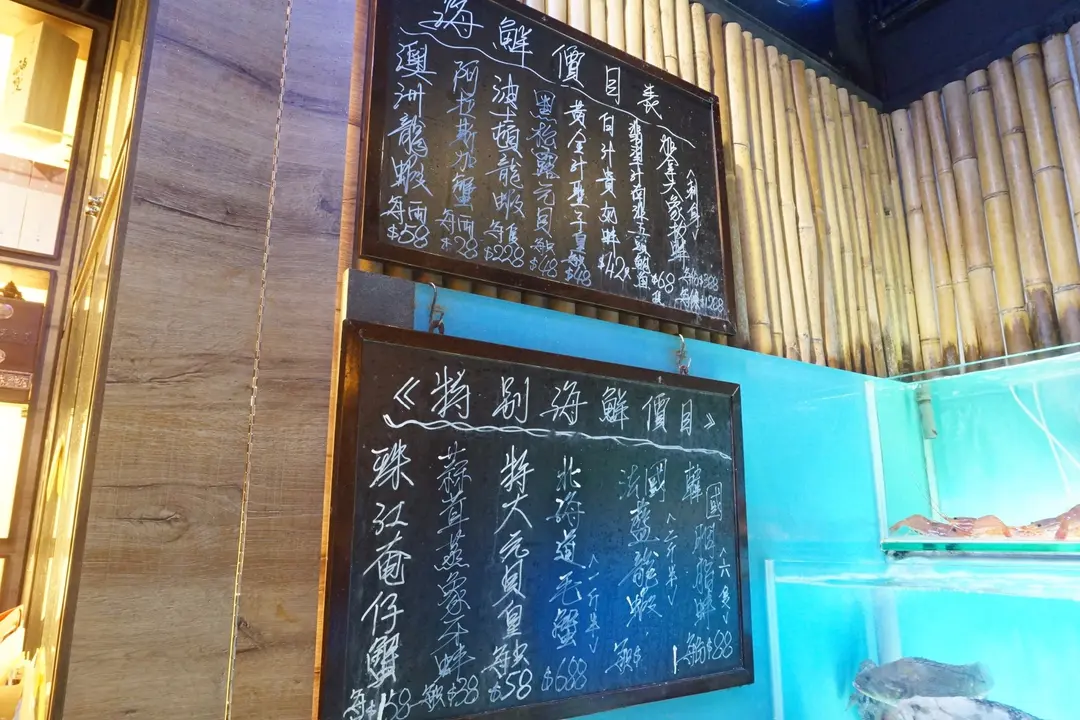 海鮮價目表
澳洲龍蝦 每両$58
阿拉斯加蟹 每両$28
波士頓龍蝦 每隻$228
黑松露元貝 每隻$48
黃金汁聖子皇 每隻$48
白汁貴妃蚌 $42隻
翡翠汁南非五頭鮑魚 $68
大象拔蚌<刺身>
《特別海鮮價目》
珠江奄仔蟹
蒜茸蒸象牙蚌 每隻$38
特大元貝皇 每隻$58
北海道毛蟹<一斤半> $688
法國藍龍蝦<一斤半> 每隻$
韓國胭脂蚌<六隻> 每份$88